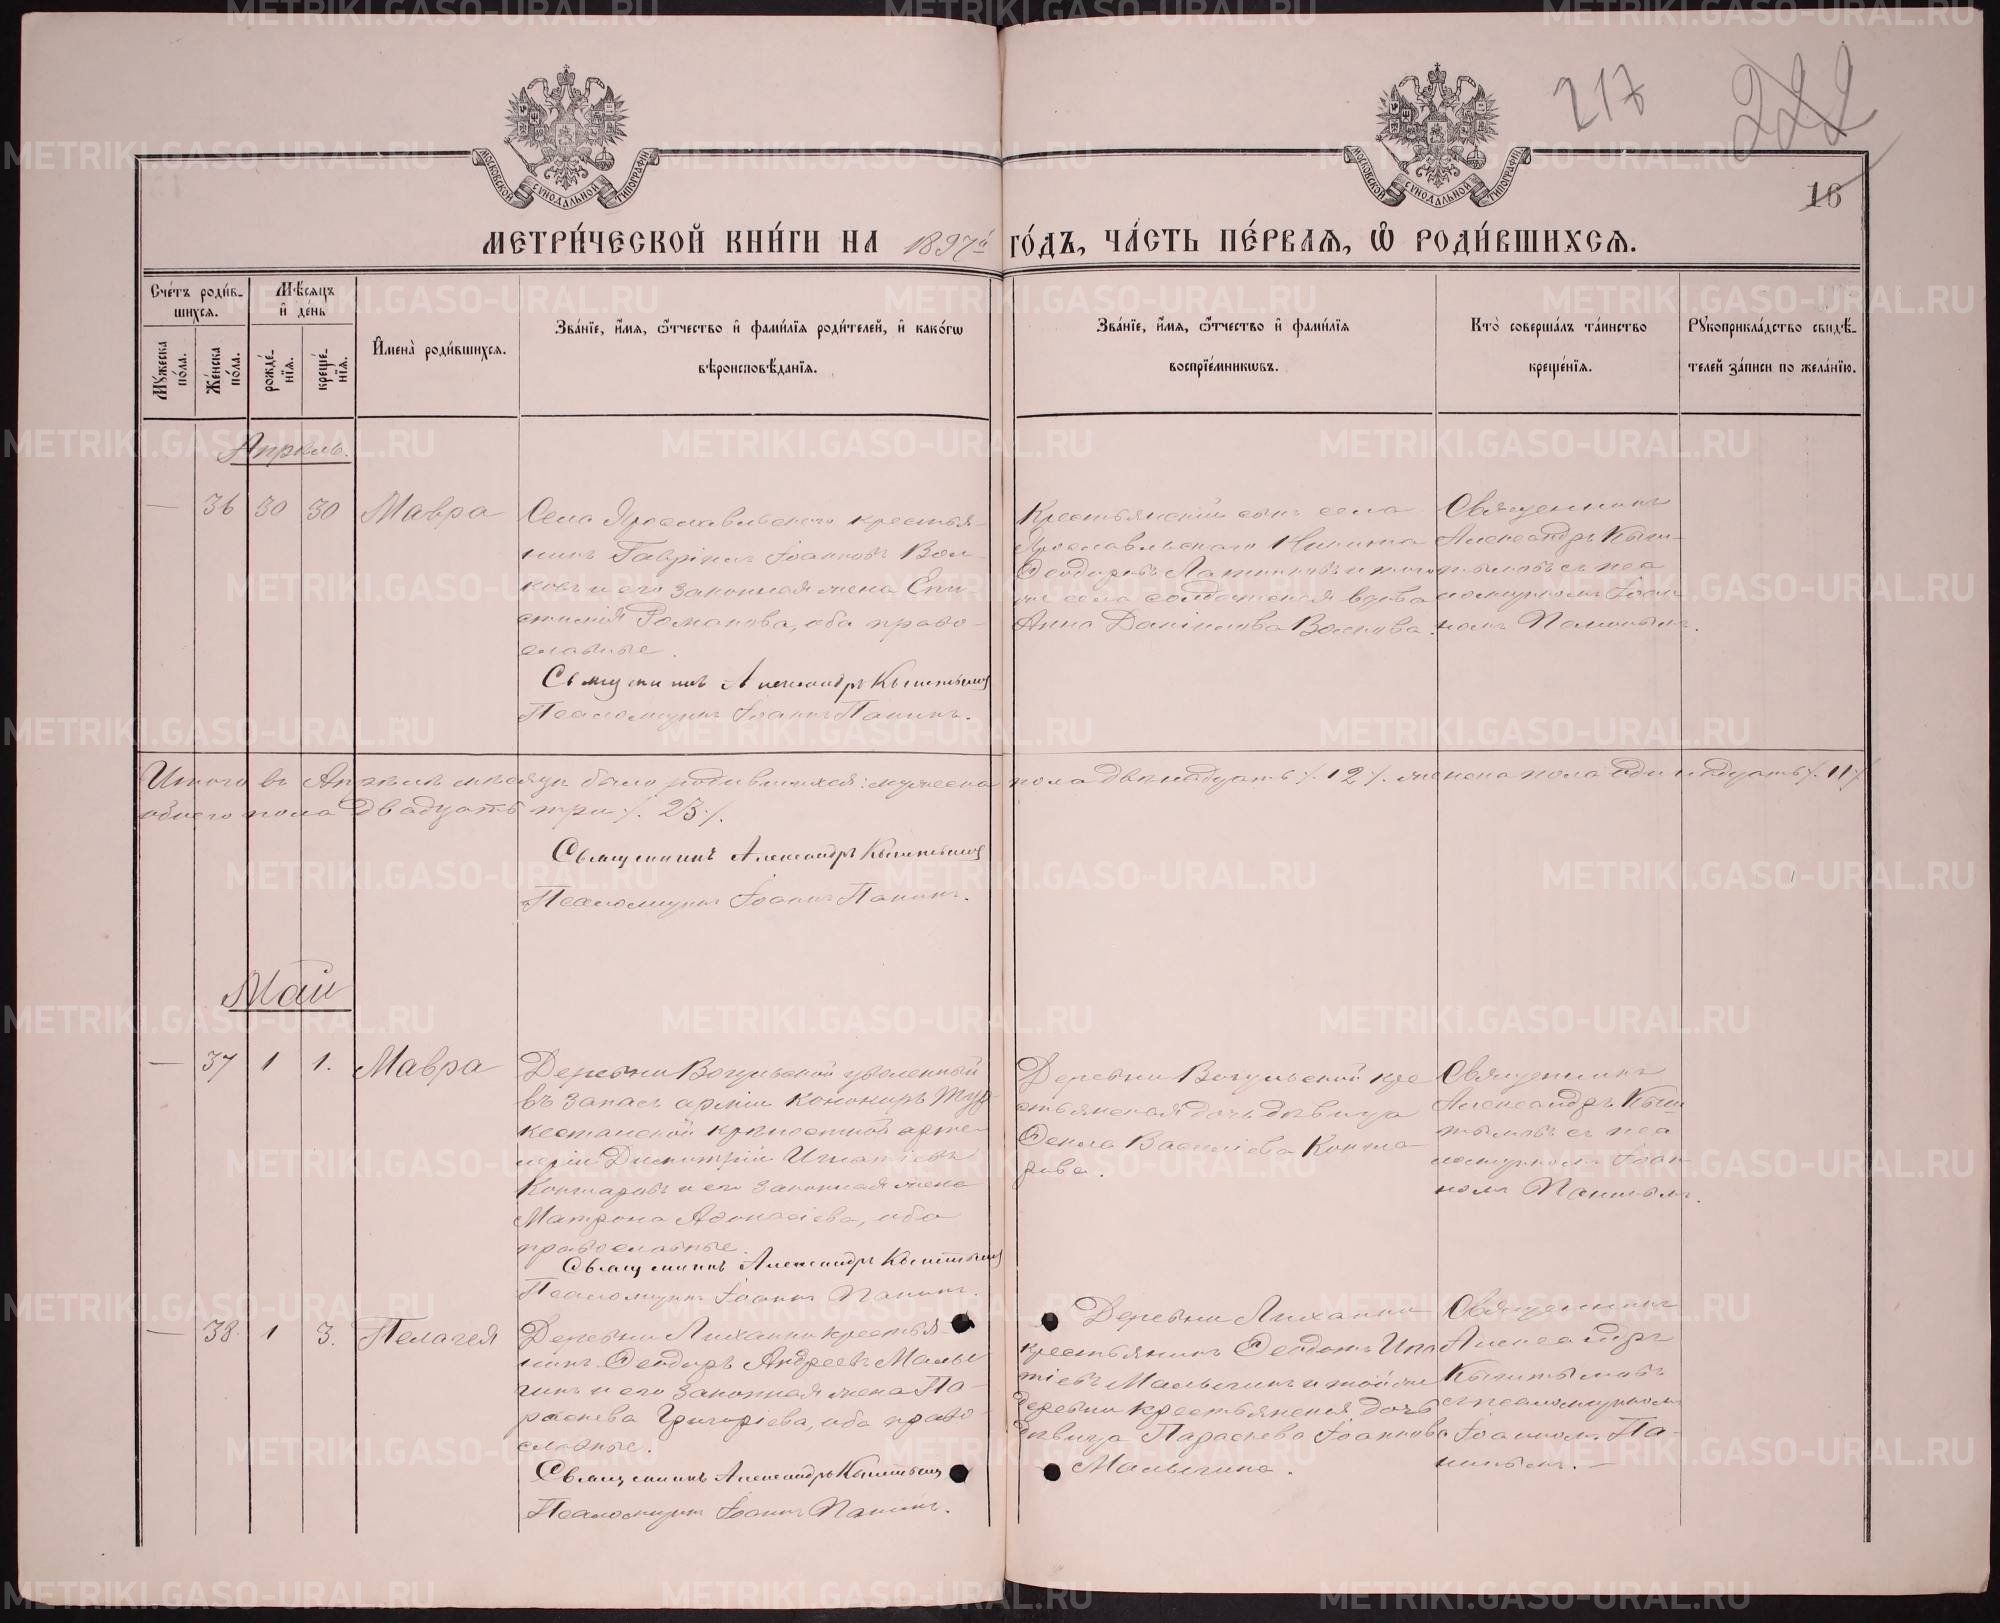 217
222
16
МОСКОВСКОЙ СѴНОДАЛЬНОЙ ТИПОГРАФІИ
МОСКОВСКОЙ СѴНОДАЛЬНОЙ ТИПОГРАФІИ
МЕТРИ́ЧЕСКОЙ КНИ́ГИ НА 1897й ГО́ДЪ, ЧА́СТЬ ПЕ́РВАѦ, Ѽ РОДИ́ВШИХСѦ.
Сче́тъ роди́в-
шихсѧ.
Мꙋ́жеска по́ла.
Же́нска по́ла.
Мѣ́сѧцъ
и де́нь
рожде́-
нїѧ.
креще́-
нїѧ.
Имена̀ роди́вшихсѧ.
Зва́нїе, и́мѧ, ѻ́тчество и фами́лїѧ роди́телей, и како́гѡ
вѣроисповѣ́данїѧ.
Зва́нїе, и́мѧ, ѻ́тчество и фами́лїѧ
воспрїе́мникѡвъ.
Кто̀ соверша́лъ та́инство
креще́нїѧ.
Рꙋкоприкла́дство свидѣ́-
телей за́писи по жела́нїю.
Апрѣль.
— 36 30 30 Мавра
Села Ярославльскаго крестья-
нинъ Гавріилъ Іоанновъ Вол-
ковъ и его законная жена Епи-
стимія Романова, оба право-
славные.
Священникъ Александръ Кыштымов
Псаломщикъ Іоаннъ Панинъ.
Крестьянскій сынъ села
Ярославльскаго Никита
Ѳеодоровъ и того
же села солдатская вдова
Анна Даніилова Волкова.
Священникъ
Александръ Кыш-
тымовъ съ пса
ломщикомъ Іоан
номъ Панинымъ.
Итого въ Апрѣлѣ мѣсяцѣ было родившихся: мужеска пола двѣнадцать /. 12 /. женска пола одиннадцать /. 11 /.
обоего пола двадцать три /. 23 /.
Священникъ Александръ Кыштымов
Псаломщикъ Іоаннъ Панинъ.
Май
— 37 1 1. Мавра
Деревни Вогульской уволенный
въ запасъ арміи кононир Тур-
кестанской крѣпостной арте-
леріи Димитрій Игнатіевъ
Контаревъ и его законная жена
Матрона Аѳонасіева, оба
православные.
Священникъ Александръ Кыштымов
Псаломщикъ Іоаннъ Панинъ.
Деревни Вогульской кре
стьянская дочь дѣвица
Ѳекла Василіева Конта
рева.
Священникъ
Александръ Кыш
тымовъ съ пса
ломщикомъ Іоан
номъ Панинымъ.
— 38. 1 3. Пелагея
Деревни Лиханки крестья-
нинъ Ѳеодоръ Андреевъ Малы
гинъ и его законная жена Па-
раскева Григоріева, оба право-
славные.
Священникъ Александръ Кыштымов
Псаломщикъ Іоаннъ Панинъ.
Деревни Лиханки
крестьянинъ Ѳеодотъ Ипа
тіевъ Малыгинъ и той же
деревни крестьянская дочь
дѣвица Параскева Іоаннова
Малыгина.
Священникъ
Александръ
Кыштымовъ
съ псаломщикомъ
Іоанномъ Па-
нинымъ. —
METRIKI.GASO-URAL.RU